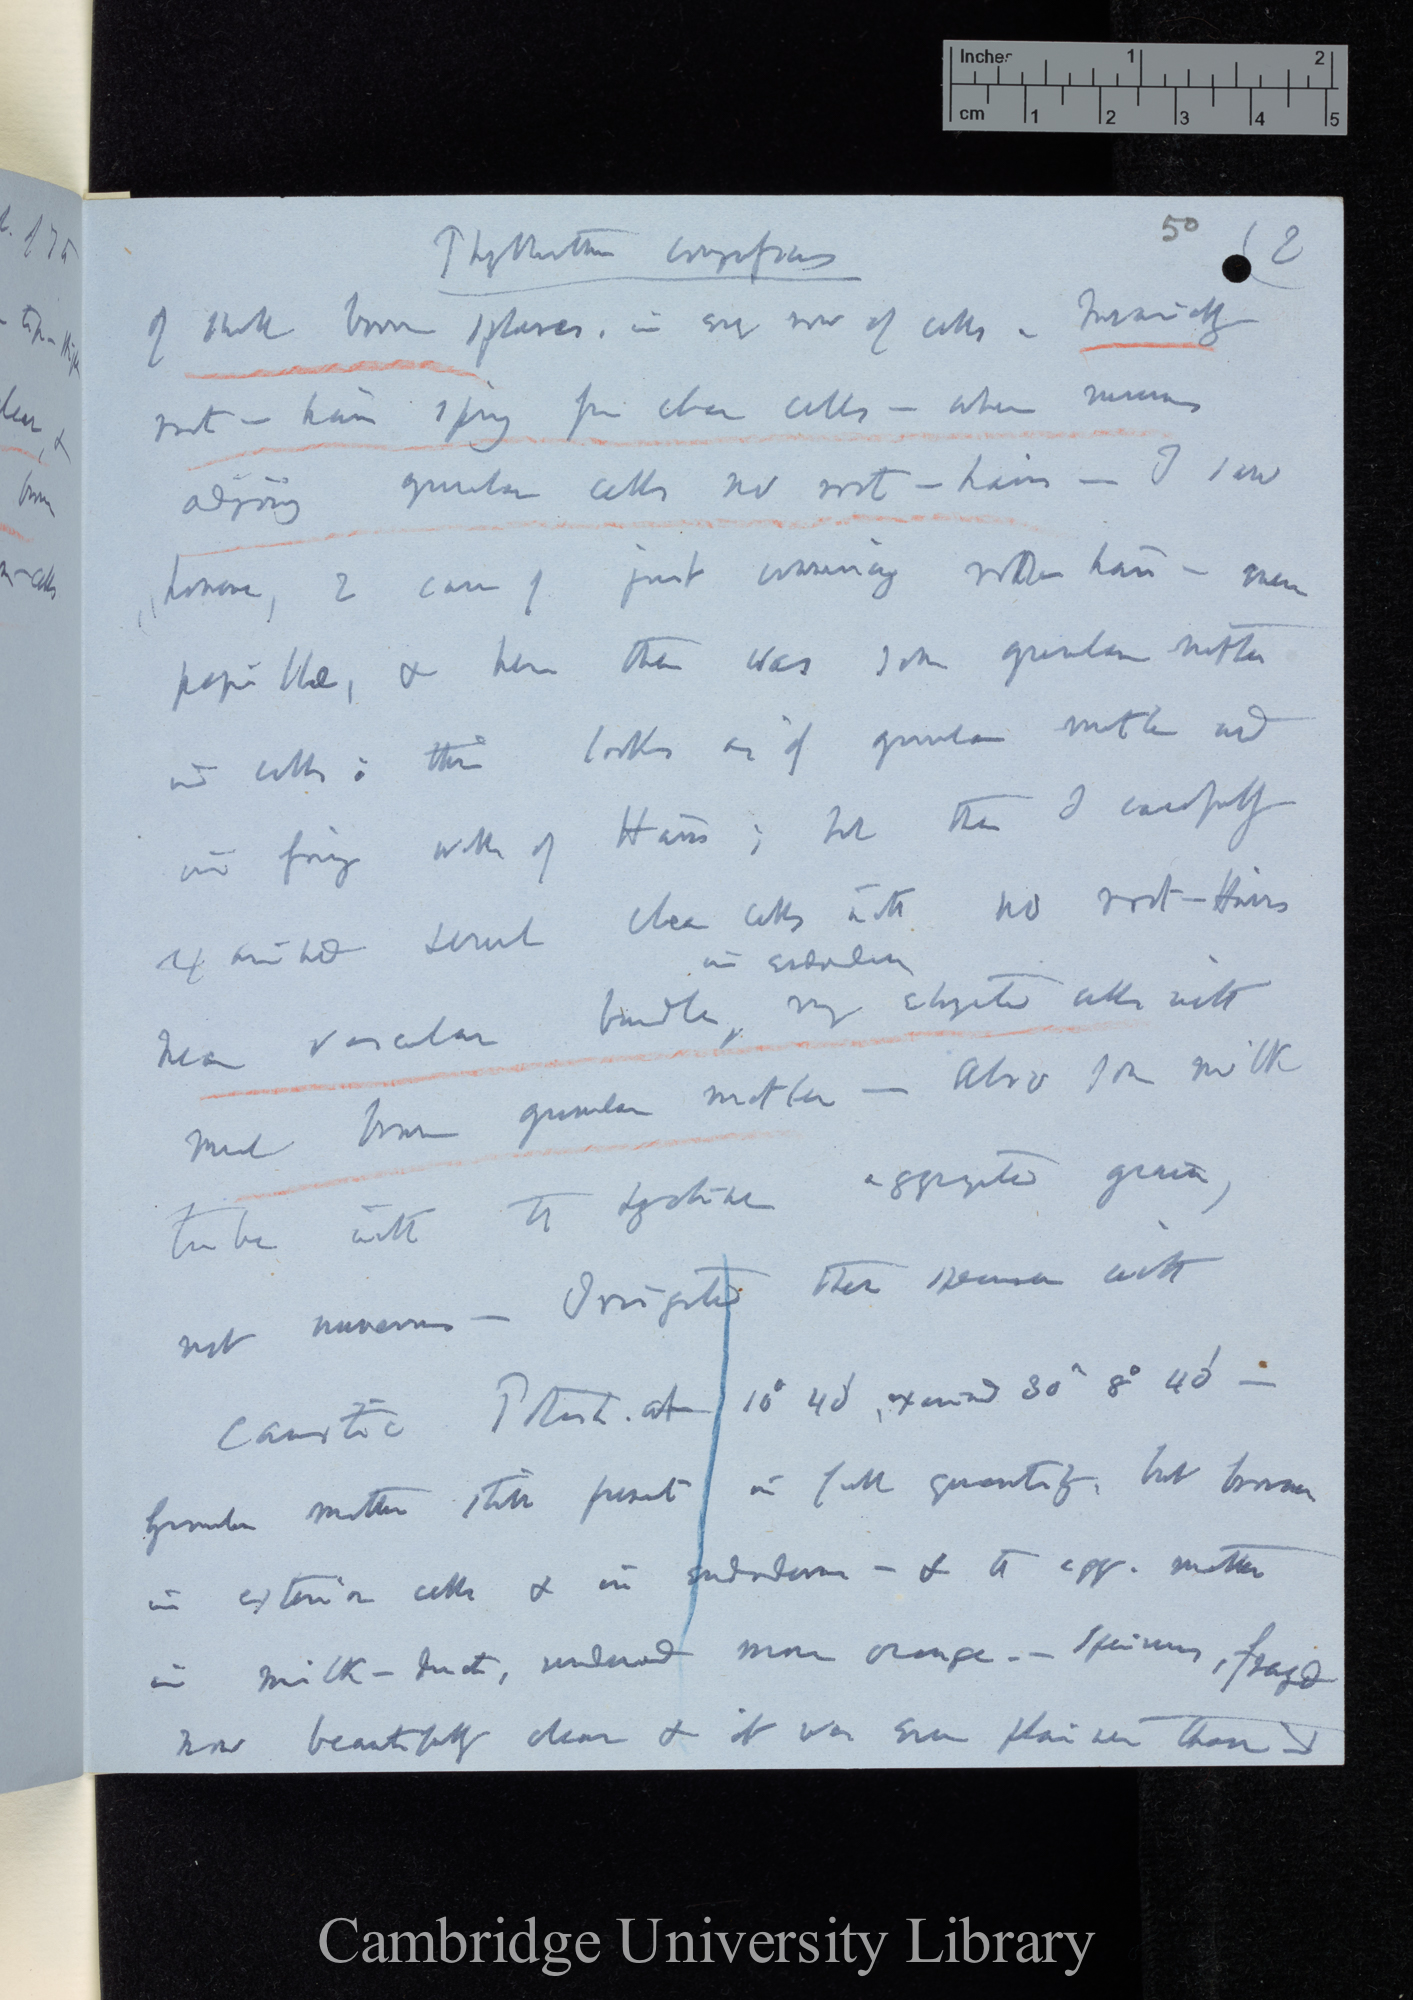 Inches 1 2
cm 1 2 3 4 5
50 (2
of small brown spheres. in every row of cells –
root – hairs spring from clear cells – when numerous
adjoining granular cells no root – hairs – I saw
however, 2 cases of just commencing hairs – mere
papillæ, & here there was some granular matter
in cells; this looks as if granular matter used
in forming walls of Hairs; but then I carefully
examined several clear cells with no root – Hairs
in endoderm
near vascular bundle, very elongated cells with
much brown granular matter – Also some milk
tubes with the aggregated grains,
not numerous – Irrigated these specimen with
Caustic Potash. at 10° 40', examined 8° 40' –
Granular matter still present in full quantity. but browner
in exterior cells & in endoderm – & the agg. matter
in milk – ducts, rendered more orange. – Specimens,
now beautifully clear & it was even plainer than
tip
clear, &
brown
cells
Cambridge University Library